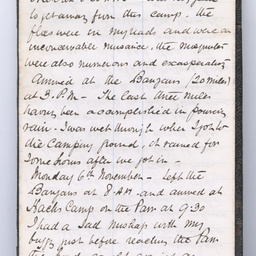 to get away from this camp. the
flies were in myriads and were an
inconceivable nuisance, the mosquitos
were also numerous and exasperating
Arrived at the Banzans (20 miles)
at 3. P.M - The last three miles
having been accomplished in pouring
rain. I was wet through when I got to
the Camping ground, it rained for
some hours after we got in -
Monday 6th November - Left the
Banzans at 8. A.M. and arrived at
Camp on the Pam at 9.30
I had a sad mishap with my
buggy just before reaching the Pam